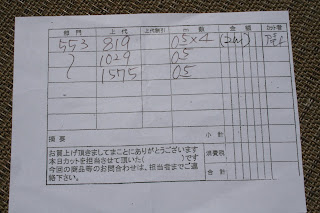 部門 上代 上代割引 m数 金額
553 819 05×4
1029 05
1575 05
摘要 小計
お買上げ頂きましてまことにありがとうございます
本日カットを担当させて頂いた( )です 消費税
今回の商品等のお問合わせは、担当者までご連
絡下さい。 合計